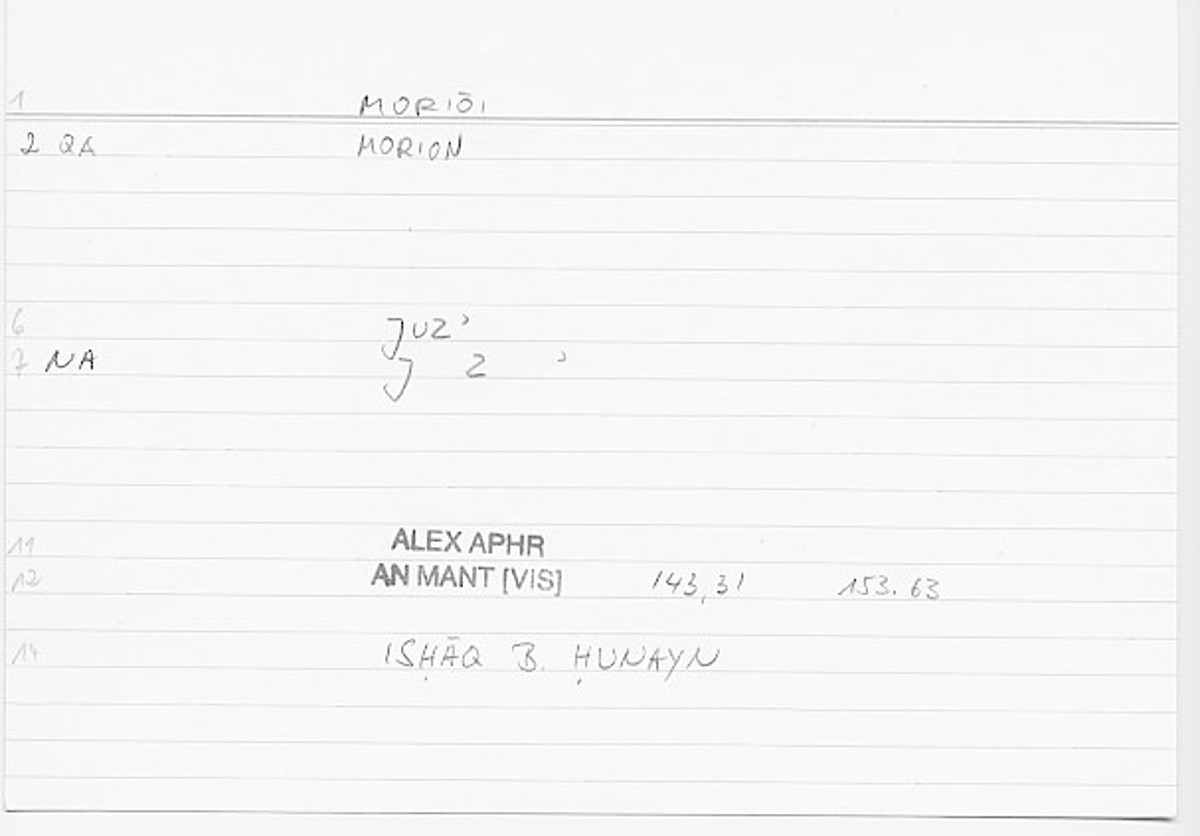 1 MORIŌI
2 QA MORION
6 JUZʾ
7 NA J Z ʾ
11 ALEX APHR
12 AN MANT [VIS] 143,31 153.63
14 ISḤĀQ B. ḤUNAYN